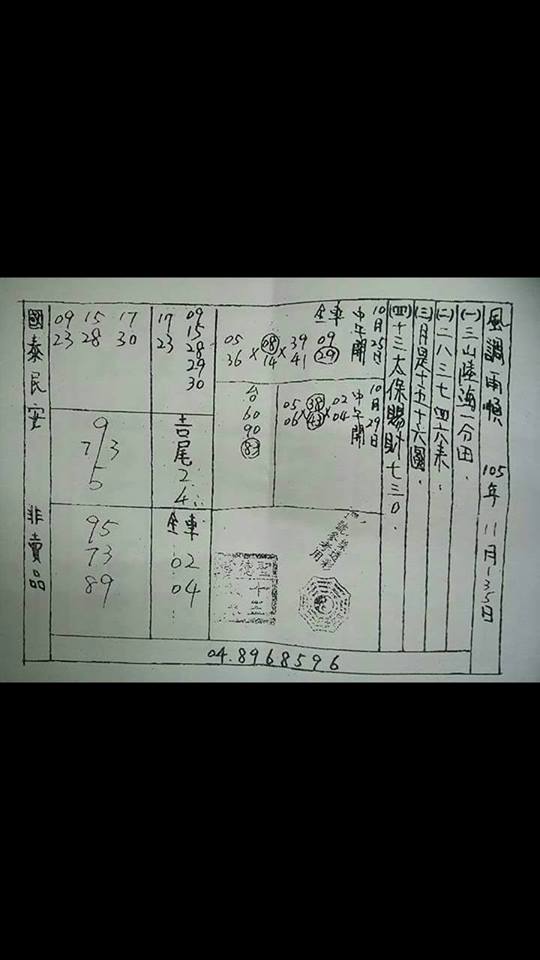 風調雨順 105年 11月1.3.5日
(一)三山陸海一分田.
(二)二八三七四六表.
(三)月是十五十六圓.
(四)十三太保賜財七三0.
10月25日
中午開
全車 09 29
39 41 × 08 14 × 05 36
10月29日
中午開
02 04 × 38 43 × 05 06
台 60 90 83
09 15 28 29 30
17 23
吉尾 2 4
全車 02 04
17 30
15 28
09 23
9
7 3
5
95
73
89
國泰民安 非賣品
04.8968596